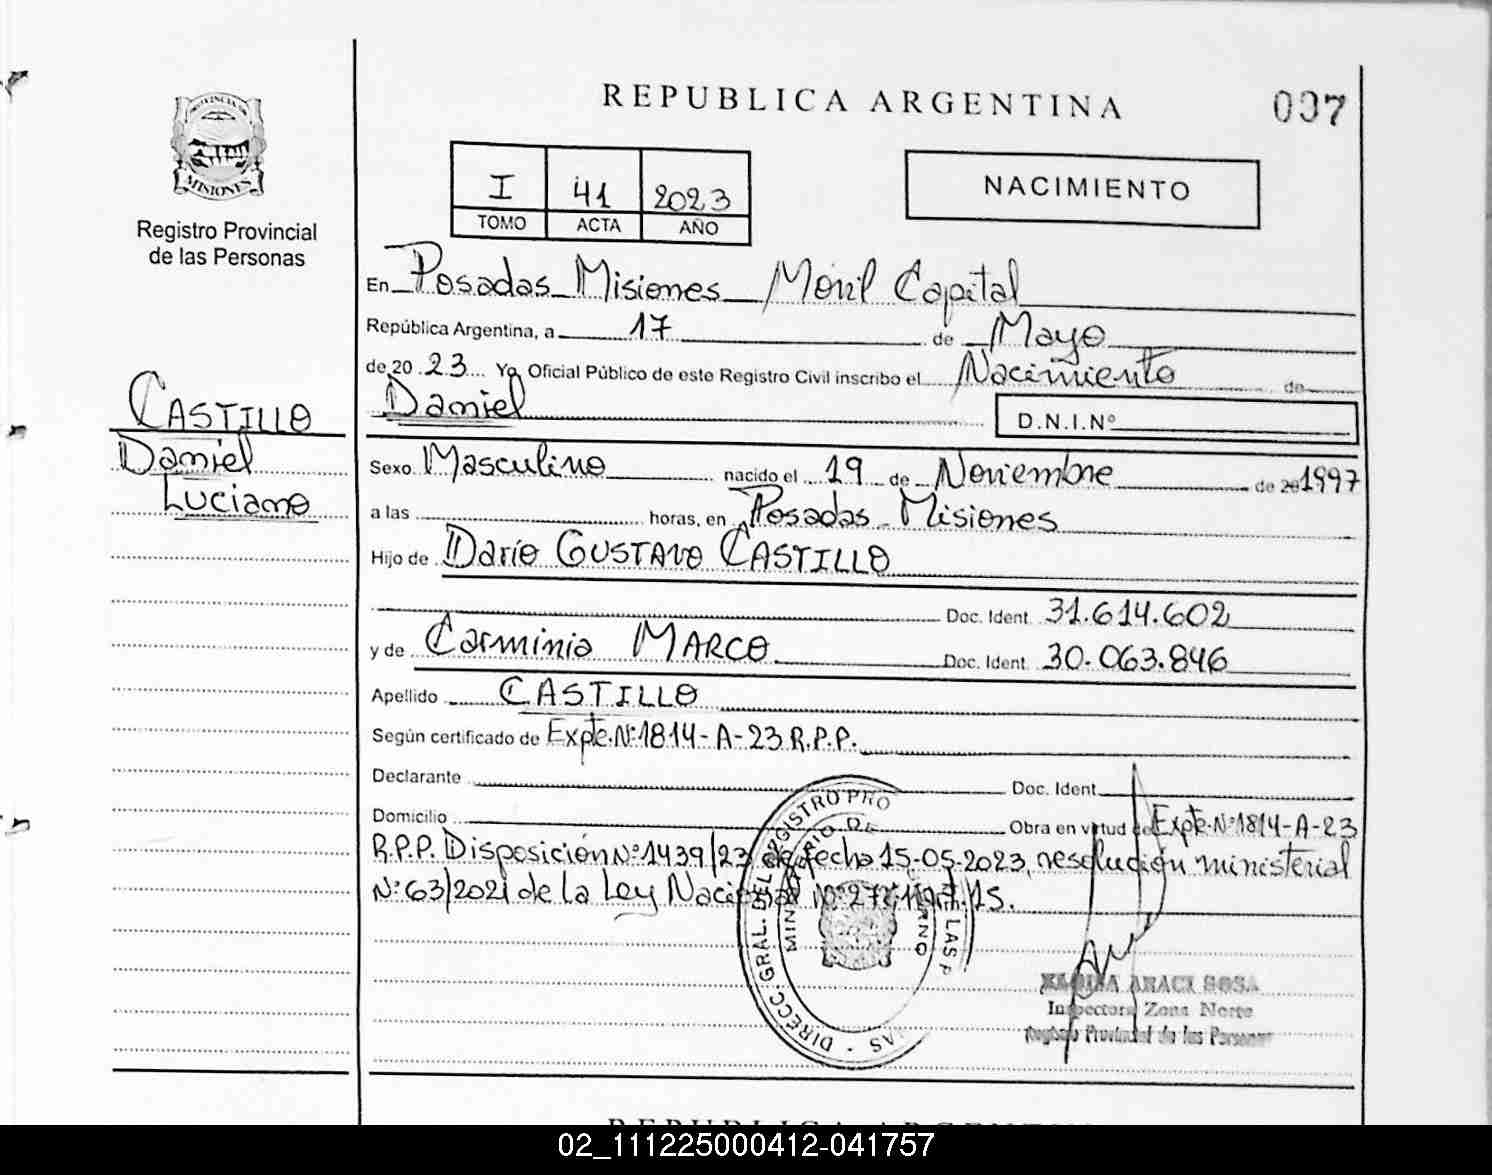 REPUBLICA ARGENTINA
037
PROVINCIA DE
MISIONES
Registro Provincial
de las Personas
I 41 2023
TOMO ACTA AÑO
NACIMIENTO
En Posadas Misiones Móvil Capital
República Argentina, a 17 de Mayo
de 20 23 Yo, Oficial Público de este Registro Civil inscribo el Nacimiento de
Daniel
D.N.I.Nº
CASTILLO
Daniel
Luciano
Sexo Masculino nacido el 19 de Noviembre de 20 1997
a las horas, en Posadas Misiones
Hijo de Darío GUSTAVO CASTILLO
Doc. Ident. 31.614.602
y de Carminia MARCO Doc. Ident. 30.063.846
Apellido CASTILLO
Según certificado de Expte.Nº1814-A-23 R.P.P.
Declarante Doc. Ident.
Domicilio Obra en virtud de Expte.Nº1814-A-23
R.P.P. Disposición Nº1439/23 de fecha 15-05-2023, resolución ministerial
Nº63/2021 de la Ley Nacional
DIRECC. GRAL. DEL REGISTRO PRO
LAS P
ARACI SOSA
Inspectora Zona Norte
Registro Provincial de las Personas
REPUBLICA ARGENTINA
02_111225000412-041757